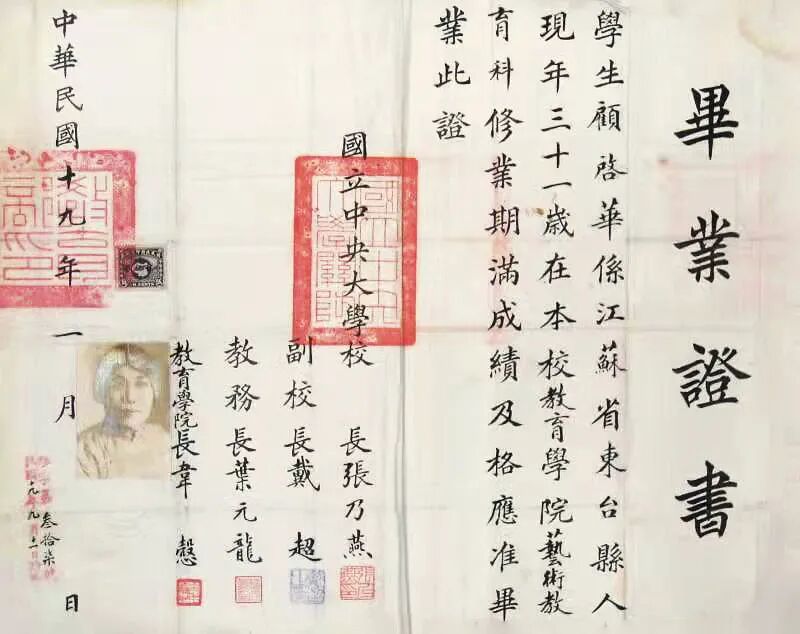 畢業證書
學生顧啓華係江蘇省東台縣人
現年三十一歲在本校教育學院藝術教
育科修業期滿成績及格應准畢
業此證
國立中央大學校長張乃燕
副校長戴超
教務長葉元龍
教育學院長韋慤
中華民國十九年一月 日
叁拾柒